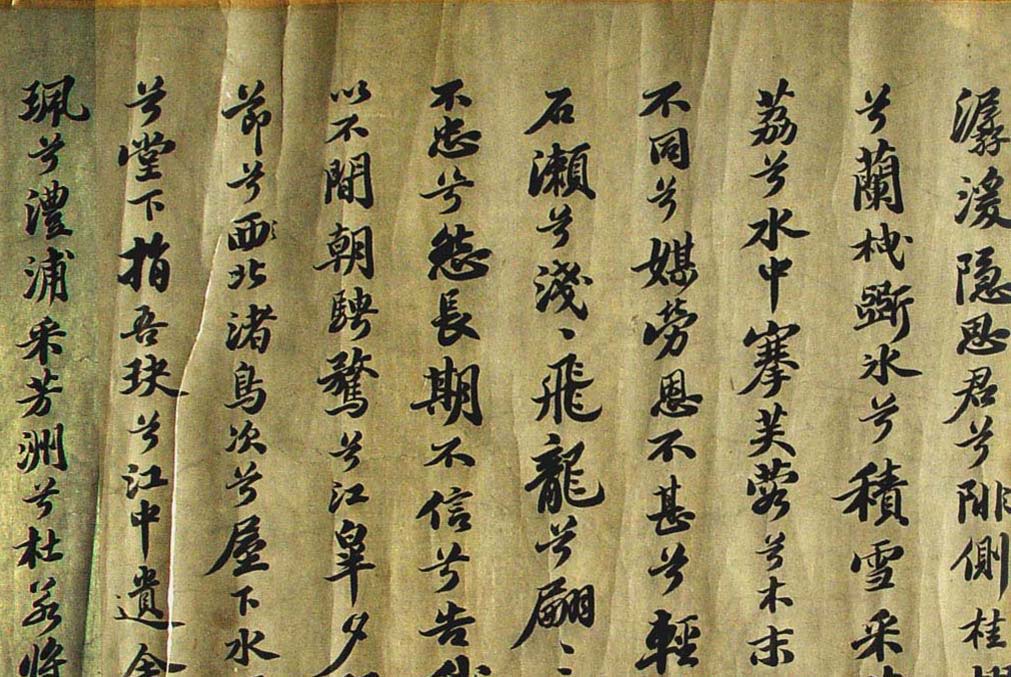 潺湲隐思君兮陫側桂
兮蘭枻斵氷兮積雪采
荔兮水中搴芙蓉兮木末
不同兮媒勞恩不甚兮輕
石瀨兮淺〻飛龍兮翩〻
不忠兮怨長期不信兮告我
以不閒朝騁騖兮江皋夕
莭兮西北渚鳥次兮屋下水
兮堂下捐吾玦兮江中遺余
珮兮澧浦采芳洲兮杜若將